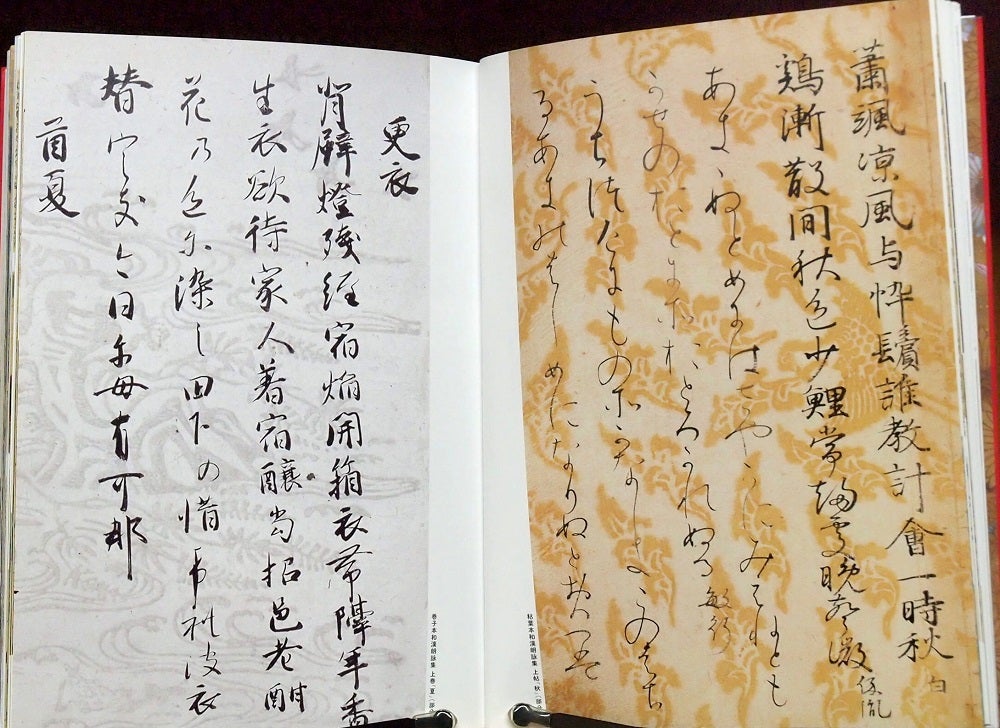 蕭颯凉風与悴鬢誰教計會一時秋 白
鶏漸散間秋色少鯉常趨處晩聲微 保胤
あきゝぬとめにはさやかにみえねとも
かせのおとにそおとろかれぬる 敏行
うちつけにものそかなしきこのはち
るあきのはしめになりぬとおもへは
粘葉本和漢朗詠集 上帖「秋」(部分
更衣
背壁燈殘經宿焔開箱衣帯隔年香
生衣欲待家人著宿釀當招邑老酣
花乃色尓染之田下の惜 礼波衣
替 今日尓毎有可那
首夏
巻子本和漢朗詠集 上巻「夏」(部分